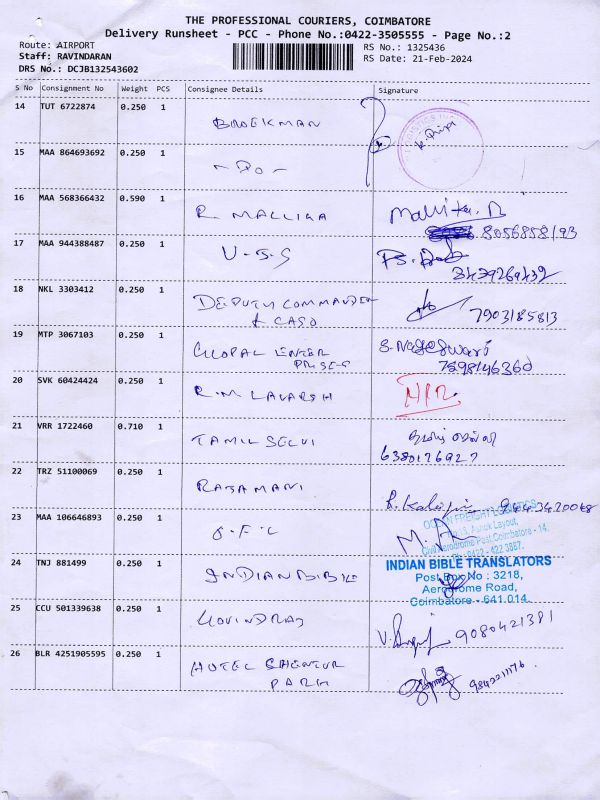 THE PROFESSIONAL COURIERS, COIMBATORE
Delivery Runsheet - PCC - Phone No.:0422-3505555 - Page No.:2
Route: AIRPORT
RS No.: 1325436
Staff: RAVINDARAN
RS Date: 21-Feb-2024
DRS No.: DCJB132543602
S No Consignment No Weight PCS Consignee Details Signature
14 TUT 6722874 0.250 1
BROEKMAN
15 MAA 864693692 0.250 1
- DO -
16 MAA 568366432 0.590 1
R MALLIKA
Mallika. R
8056858193
17 MAA 944388487 0.250 1
U-S-S
18 NKL 3303412 0.250 1
DEPUTY COMMANDER
& CASO
7903185813
19 MTP 3067103 0.250 1
GLOPAL ENTER
PRISES
S. Nageswari
7598146360
20 SVK 60424424 0.250 1
21 VRR 1722460 0.710 1
TAMIL SELVI
தமிழ் செல்வி
6380176927
22 TRZ 51100069 0.250 1
RAJAMANI
23 MAA 106646893 0.250 1
O.F.L
OCEAN FREIGHT LOGISTICS
Ashok Layout,
Civil Aerodrome Post, Coimbatore - 14.
24 TNJ 881499 0.250 1
INDIAN BIBLE
INDIAN BIBLE TRANSLATORS
Post Box No : 3218,
Aerodrome Road,
Coimbatore - 641 014.
25 CCU 501339638 0.250 1
GOVINDRAJ
9080421381
26 BLR 4251905595 0.250 1
HOTEL SHENTUR
PARK